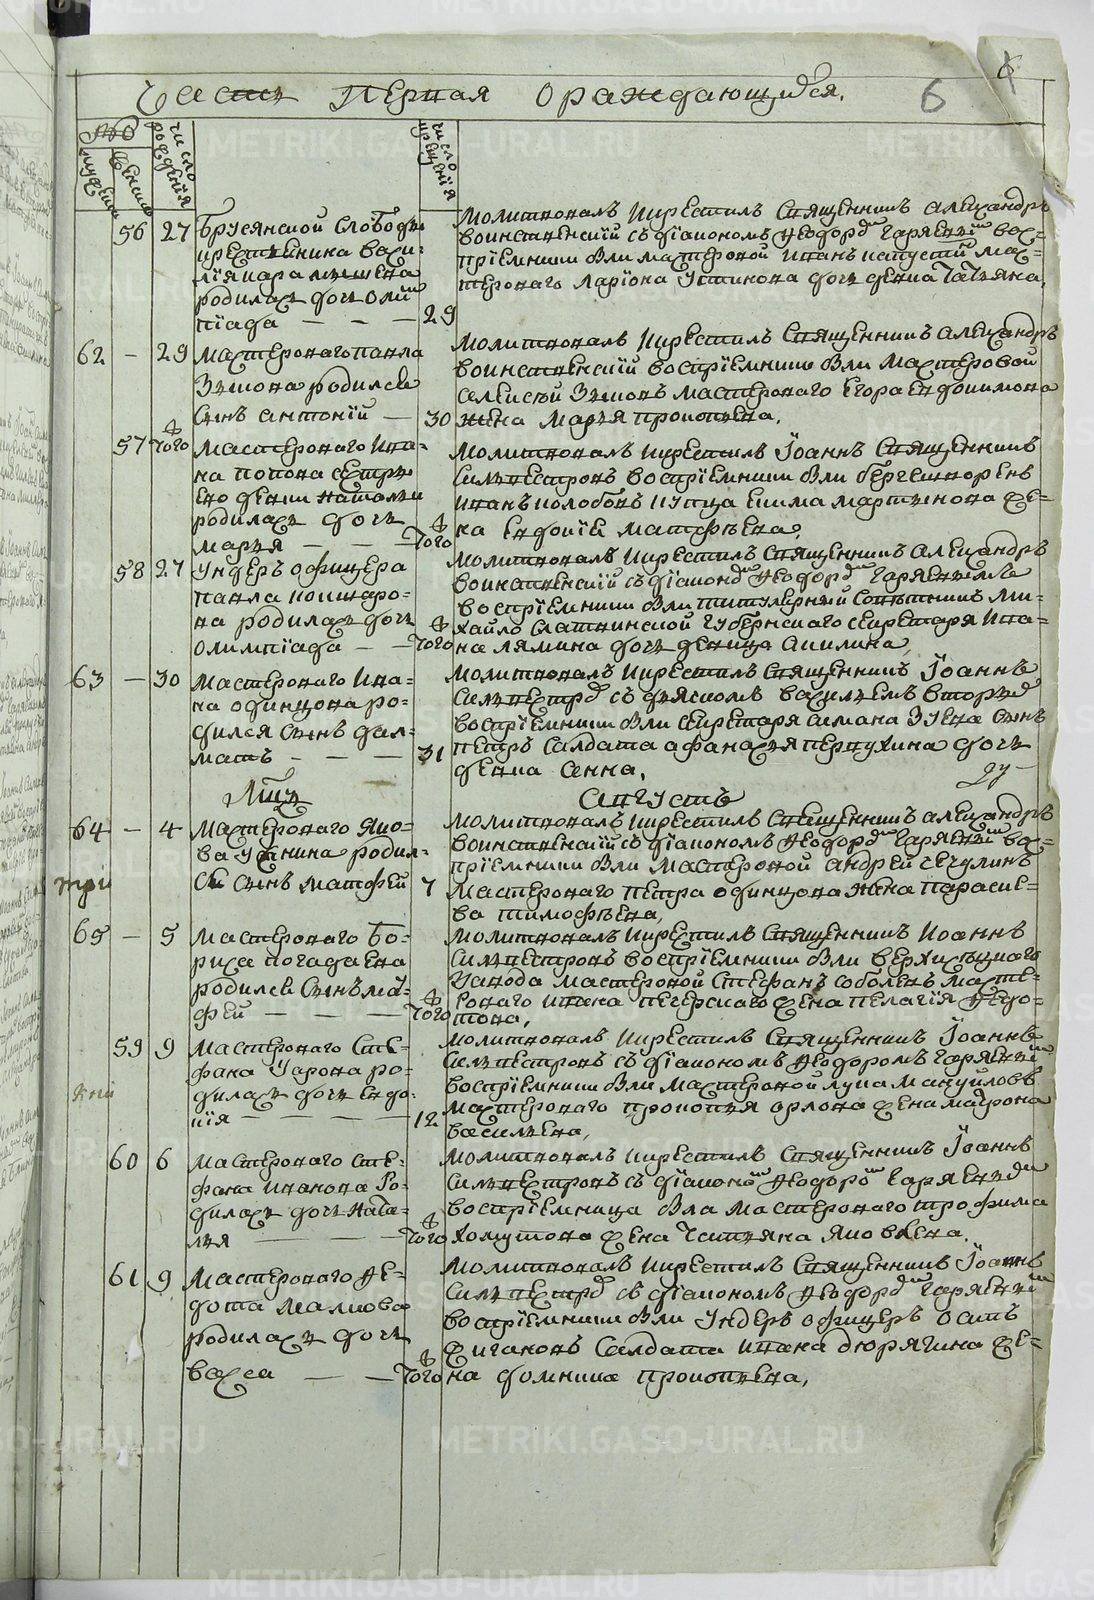 METRIKI.GASO-URAL.RU
Часть первая о раждающихся.
6
число рождения
число крещения
56 27 Брусянской слободы
крестьянина Васи-
лия
родилась дочь Олим-
пиада — — — 29
Молитвовалъ и крестилъ священникъ Александръ
Воинственскiй съ дiакономъ Ѳедоромъ Горяевымъ вос-
прiемники были мастеровой Иванъ мас-
тероваго Ларiона Устинова дочь девка Татьяна.
62 — 29 Мастероваго Павла
Зыкова родился
сынъ Антонiй — 30
Молитвовалъ и крестилъ священникъ Александръ
Воинственскiй воспрiемники были мастеровой
Зыковъ мастероваго Егора Евдокимова
жена Марья Прокопьева.
57 Того Мастероваго Ива-
на Попова сестры
ево девки Натальи
родилась дочь
Марья — — — Того
Молитвовалъ и крестилъ Iоаннъ священникъ
Силвестровъ воспрiемники были
Иванъ Колобовъ купца Екима Мартынова же-
на Евдокiя Матфѣева.
58 27 Ундеръ офицера
Павла
ва родилась дочь
Олимпiада — — Того
Молитвовалъ и крестилъ священникъ Александръ
Воинственскiй съ дiакономъ Ѳедоромъ Горяевымъ
воспрiемники были титулярный советникъ Ми-
хайло губернскаго секретаря Ива-
на Лямина дочь девица Акилина,
63 — 30 Мастероваго Ива-
на Одинцова ро-
дился сынъ Дал-
матъ — — — 31
Молитвовалъ и крестилъ священникъ Iоаннъ
Силвестровъ съ дьякомъ Васильемъ
воспрiемники были секретаря Симана Зуева сынъ
Петръ солдата Афанасья дочь
девка Анна.
Августъ
64 — 4 Мастероваго Яко-
ва родил-
ся сынъ Матфей 7
Молитвовалъ и крестилъ священникъ Александръ
Воинственскiй съ дiакономъ Ѳедоромъ Горяевымъ вос-
прiемники были мастеровой Андрей
мастероваго Петра Одинцова жена Параске-
ва Тимофѣева,
при
65 — 5 Мастероваго Бо-
риса Погадаева
родился сынъ Мат-
фей — — — Того
Молитвовалъ и крестилъ священникъ Иоаннъ
Силвестровъ воспрiемники были Верхисецкаго
завода мастеровой Стефанъ Соболевъ масте-
роваго Ивана Печерскаго жена Пелагiя Ѳедо-
това,
59 9 Мастероваго Сте-
фана ро-
дилась дочь Евдо-
кiя — — 12
Молитвовалъ и крестилъ священникъ Iоаннъ
Силвестровъ съ дiакономъ Ѳедоромъ Горяевымъ
воспрiемники были мастеровой Лука Мануйловъ
мастероваго Прокопья Орлова жена Матрона
Васильева,
60 6 Мастероваго Сте-
фана Иванова ро-
дилась дочь Ната-
лья — — Того
Молитвовалъ и крестилъ священникъ Iоаннъ
Силвестровъ съ дiакономъ Ѳедоромъ Горяевымъ
воспрiемница была мастероваго Трофима
Хомутова жена Татьяна Яковлева.
61 9 Мастероваго Ѳе-
дота Малкова
родилась дочь
Васса — — Того
Молитвовалъ и крестилъ священникъ Iоаннъ
Силвестровъ съ дiакономъ Ѳедоромъ Горяевымъ
воспрiемники были ундеръ офицеръ Осипъ
солдата Ивана Дюрягина же-
на Домника Прокопьева,
METRIKI.GASO-URAL.RU
METRIKI.GASO-URAL.RU